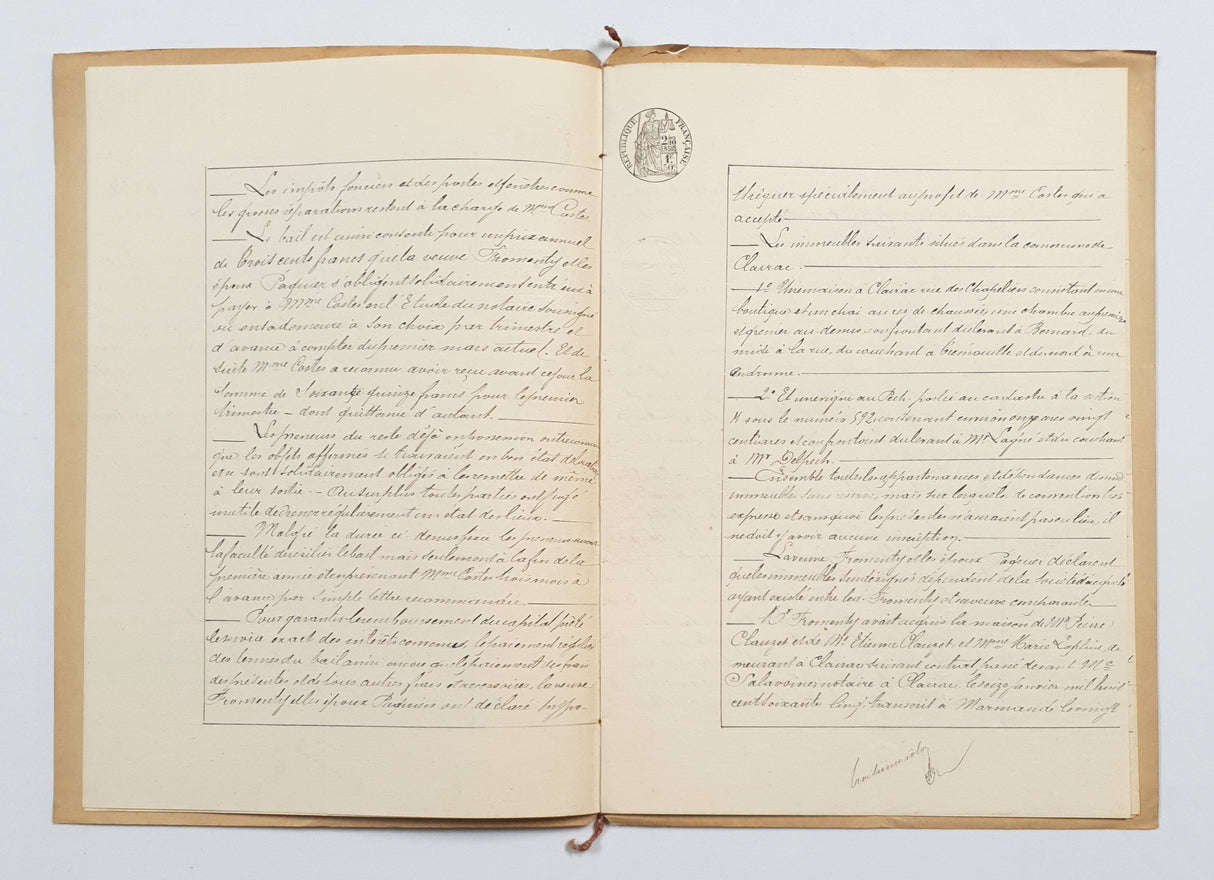 Les impôts fonciers et des portes et fenêtres comme
les grosses réparations restent à la charge de Mme Costes.
Le bail est ainsi consenti pour un prix annuel
de Trois cents francs que la veuve Fromenty et les
époux Paquier s'obligent solidairement entre eux à
payer à Mme Costes en l'Etude du notaire soussigné
ou en sa demeure à son choix par trimestre et
d'avance à compter du premier mars actuel. Et de
suite Mme Costes a reconnu avoir reçu avant ce jour la
somme de Soixante quinze francs pour le premier
trimestre - dont quittance d'autant.
Les preneurs du reste déjà en possession ont reconnu
que les objets affermés se trouvaient en bon état
et se sont solidairement obligés à les remettre de même
à leur sortie. - Au surplus toutes parties ont jugé
inutile de dresser régulièrement un état des lieux.
Malgré la durée ci-dessus fixée les preneurs auront
la faculté de résilier le bail mais seulement à la fin de la
première année et en prévenant Mme Costes trois mois à
l'avance par simple lettre recommandée.
Pour garantir le remboursement du capital prêté
le service exact des intérêts convenus, le paiement régulier
des termes du bail ainsi encore que le paiement des frais
des présentes et de tous autres frais et accessoires, la veuve
Fromenty et les époux Paquier ont déclaré hypo-
RÉPUBLIQUE FRANÇAISE
2 DES 10 EN SUS
1F 50C
théquer spécialement au profit de Mme Costes qui a
accepté
Les immeubles suivants situés dans la commune de
Clairac.
1º Une maison à Clairac rue des Chapeliers consistant en une
boutique et un chai au rez de chaussée, une chambre au premier
et grenier au dessus, confrontant du levant à Bernard, du
midi à la rue, du couchant à Trémouille et du nord à une
androne.
2º Et une vigne au Pech portée au cadastre à la section
H sous le numéro 592, contenant environ onze ares vingt
centiares et confrontant du levant à Mr Lagné et du couchant
à Mr Delpech.
Ensemble toutes les appartenances et dépendances desd.
immeubles sans réserve, mais sur lesquels de convention très
expresse et sans quoi les présentes n'auraient pas eu lieu, il
ne doit y avoir aucune inscription.
La veuve Fromenty et les époux Paquier déclarent
que les immeubles sus désignés dépendent de la société d'acquêts
ayant existé entre led. Fromenty et sa veuve comparante
Mr Fromenty avait acquis la maison de Mr Pierre
Clauzet et de Mr Etienne Clauzet et Mme Marie Laplène, de
meurant à Clairac suivant contrat passé devant Me
Salavoine, notaire à Clairac, le seize janvier mil huit
cent soixante cinq, transcrit à Marmande le vingt
troisième rôle